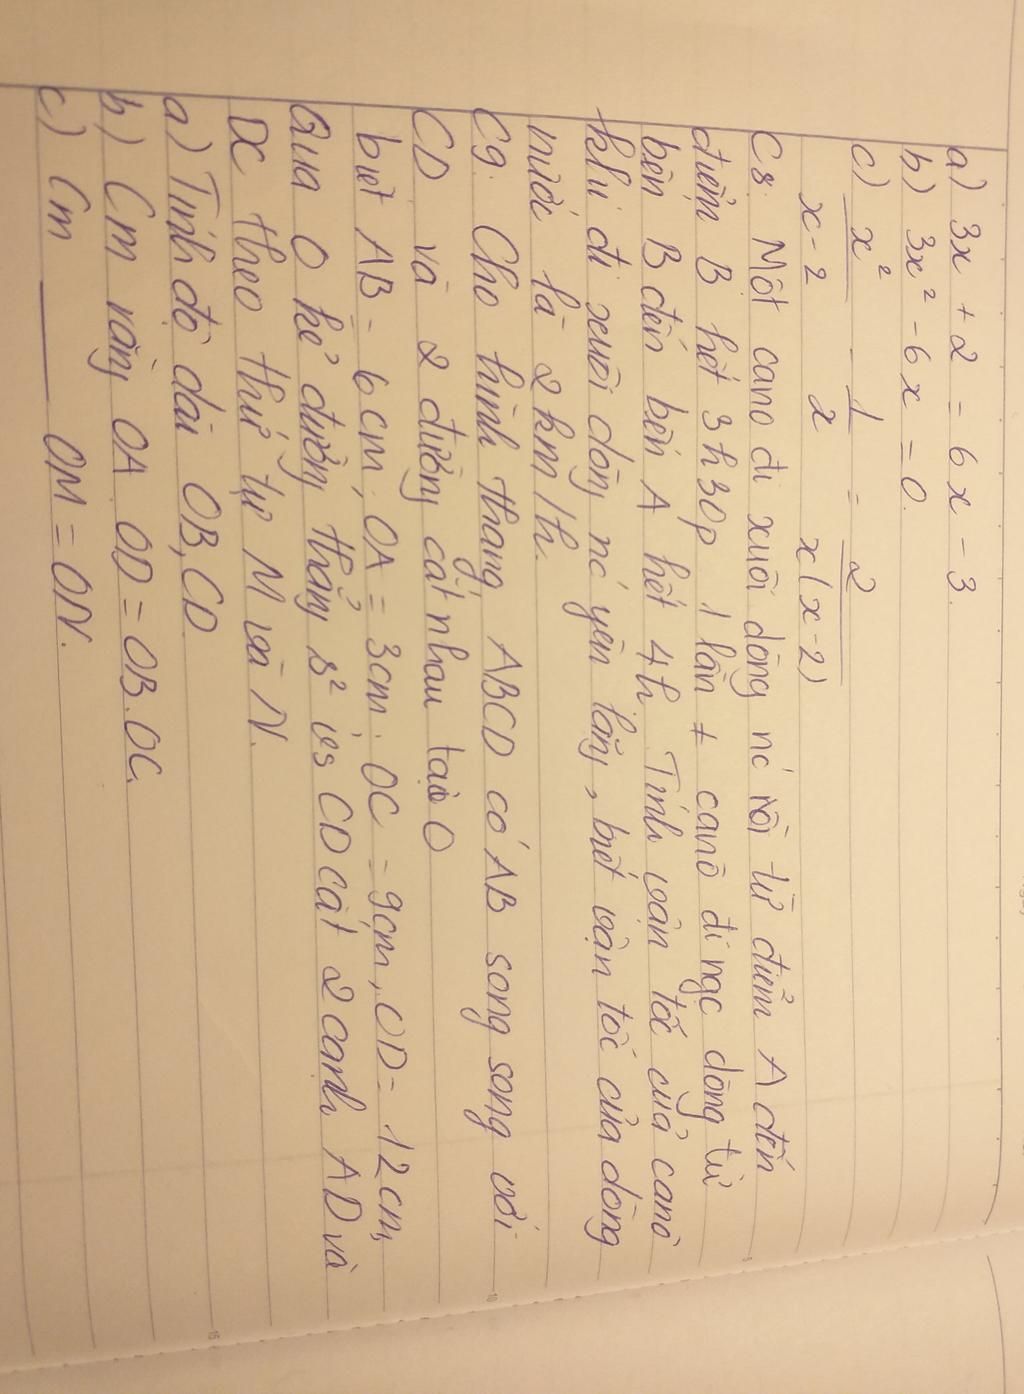 a) 3x + 2 = 6x - 3.
b) 3x² - 6x = 0.
c) x²/x-2 - 1/x = 2/x(x-2)
C8. Một cano đi xuôi dòng nc rồi từ điểm A đến
điểm B hết 3h30p 1 lần ≠ canô đi ngc dòng từ
bến B đến bến A hết 4h. Tính vận tốc của canô
khi đi xuôi dòng nc yên lặng, biết vận tốc của dòng
nước là 2km/h.
C9. Cho hình thang ABCD có AB song song với
CD và 2 đường cắt nhau tại O
biết AB = 6cm; OA = 3cm; OC = 9cm, OD = 12cm,
Qua O kẻ đường thẳng s² vs CD cắt 2 cạnh AD và
DC theo thứ tự M và N.
a) Tính độ dài OB, CD
b) Cm rằng OA OD = OB.OC.
c) Cm ____ OM = ON.